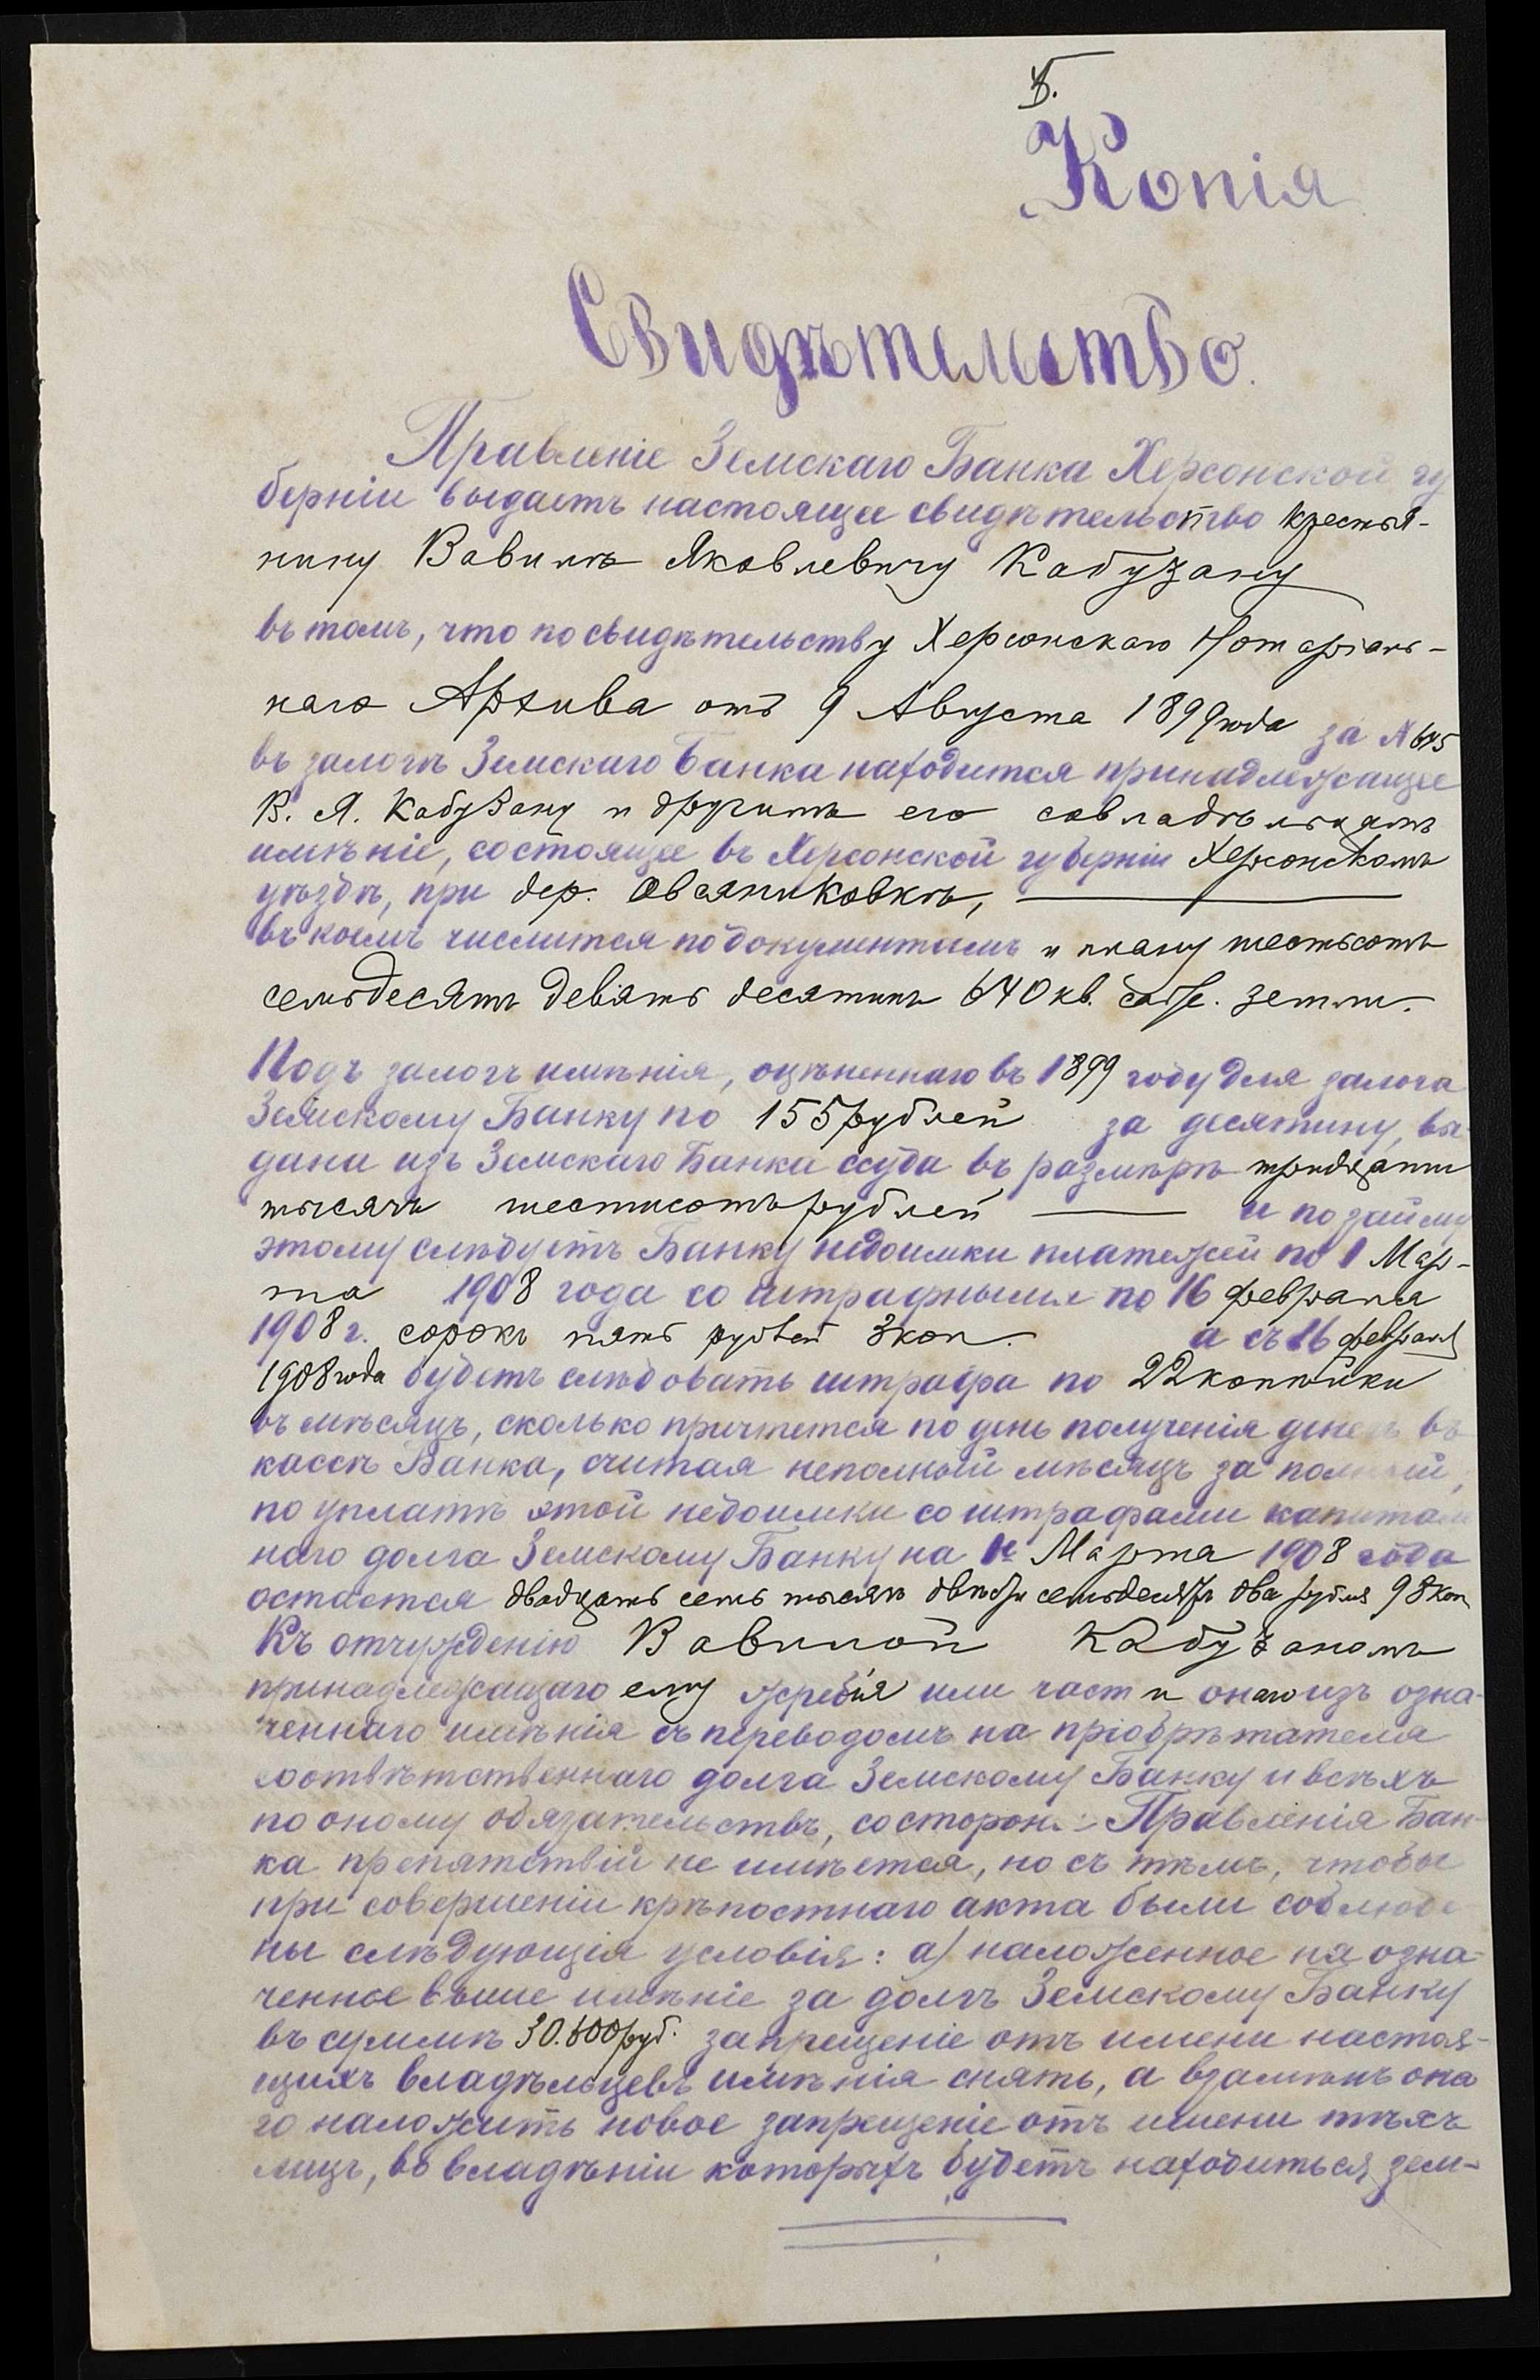 Б.
Копія
Свидѣтельство.
Правленіе Земскаго Банка Херсонской гу
берніи выдаетъ настоящее свидѣтельство крестья-
нину Вавилѣ Яковлевичу Кабузану
въ томъ, что по свидѣтельству Херсонскаго Нотаріаль-
наго Архива отъ 9 Августа 1899 года за №
въ залогѣ Земскаго Банка находится принадлежащее
В. Я. Кабузану и другимъ его совладѣльцамъ
имѣніе, состоящее въ Херсонской губерніи Херсонскомъ
уѣздѣ, при дер. Овсяниковкѣ,
въ коемъ числится по документамъ и плану шестьсотъ
семьдесятъ девять десятинъ 640 кв. саж. земли.
Подъ залогъ имѣнія, оцѣненнаго въ 1899 году для залога
Земскому Банку по 155 рублей за десятину, вы
дана изъ Земскаго Банка ссуда въ размѣрѣ тридцати
тысячъ шестисотъ рублей и по займу
этому слѣдуетъ Банку недоимки платежей по 1 Мар-
та 1908 года со штрафными по 16 февраля
1908 г. сорокъ пять рублей 3 коп. а съ 16 февраля
1908 года будетъ слѣдовать штрафа по 22 копѣйки
въ мѣсяцъ, сколько причтется по день полученія денегъ въ
кассѣ Банка, считая неполный мѣсяцъ за полный,
по уплатѣ этой недоимки со штрафами капиталь
наго долга Земскому Банку на 1е Марта 1908 года
остается двадцать семь тысячъ двѣсти семьдесятъ два рубля 98 коп.
Къ отчужденію Вавилой Кабузаномъ
принадлежащаго ему жребія или части онаго изъ озна-
ченнаго имѣнія съ переводомъ на пріобрѣтателя
соотвѣтственнаго долга Земскому Банку и всѣхъ
по оному обязательствъ, со стороны Правленія Бан-
ка препятствій не имѣется, но съ тѣмъ, чтобы
при совершеніи крѣпостнаго акта были соблюде
ны слѣдующія условія: а) наложенное на озна-
ченное выше имѣніе за долгъ Земскому Банку
въ суммѣ 30.600 руб. запрещеніе отъ имени настоя-
щихъ владѣльцевъ имѣнія снять, а взамѣнъ она
го наложить новое запрещеніе отъ имени тѣхъ
лицъ, во владѣніи которыхъ будетъ находиться зем-